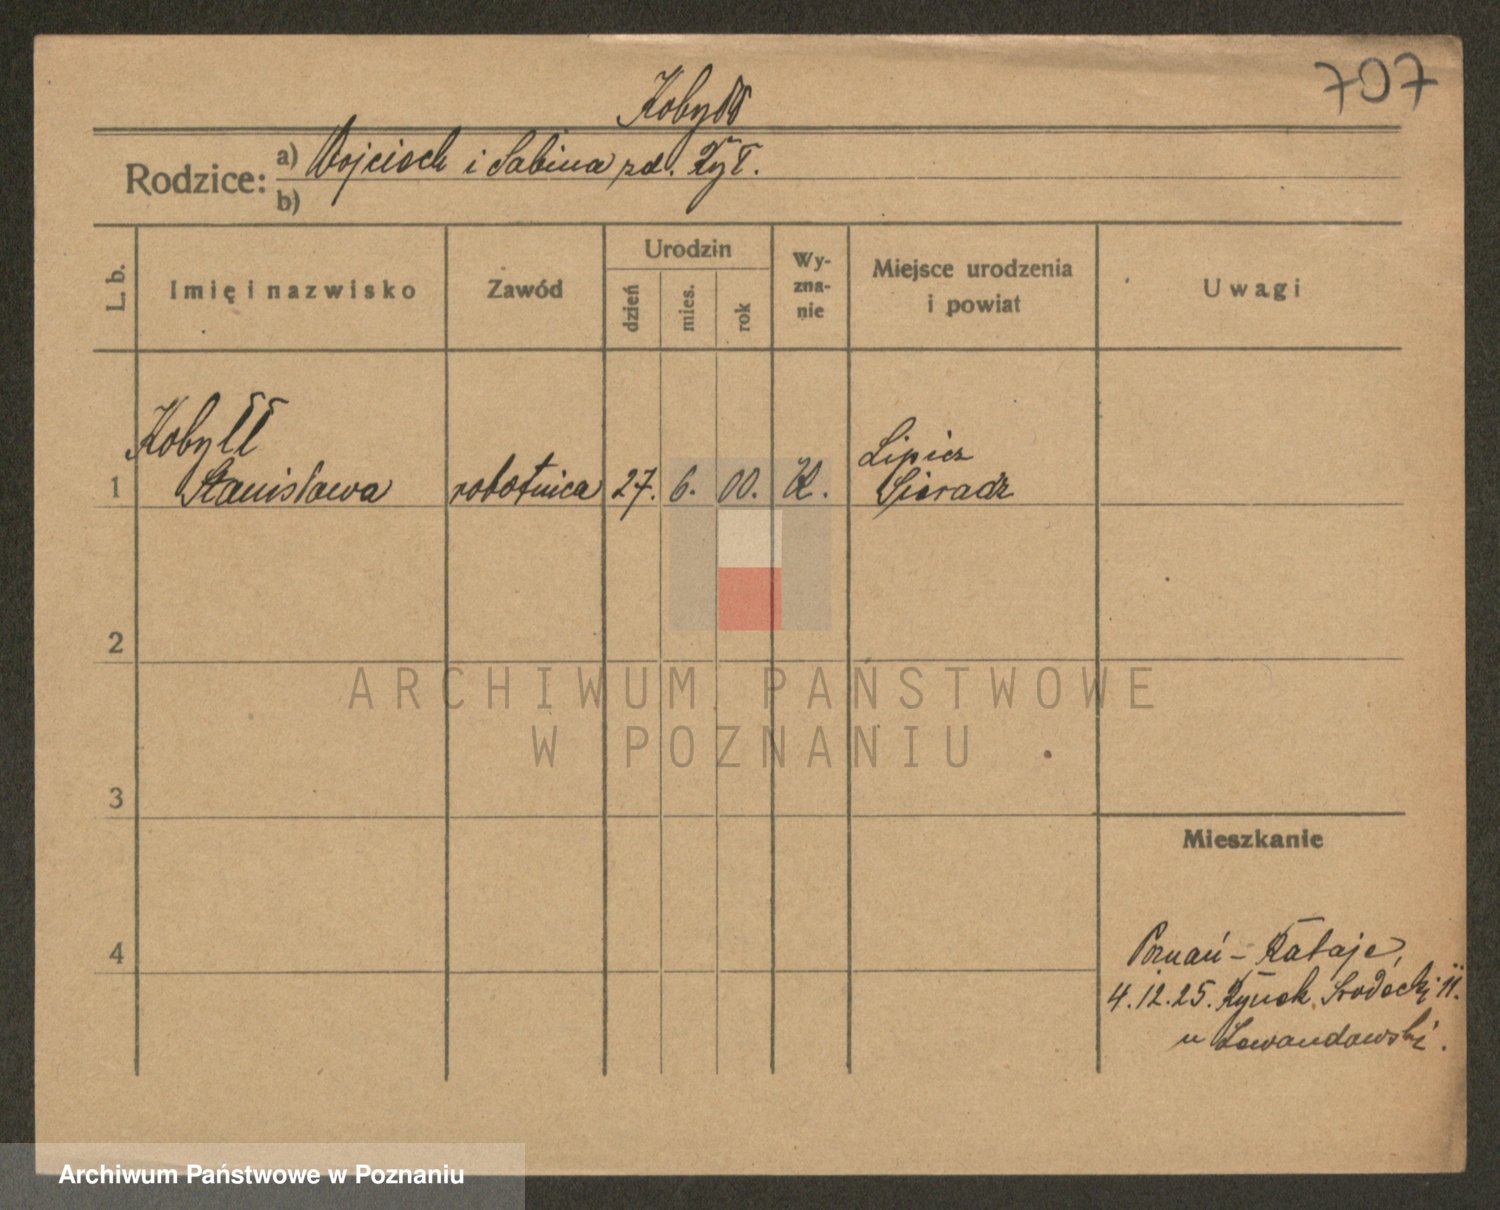 707
Kobyłł
Rodzice: a) Wojciech i Sabina zd. Żył.
b)
L. b.
Imię i nazwisko
Zawód
Urodzin
dzień
mies.
rok
Wy-
zna-
nie
Miejsce urodzenia
i powiat
Uwagi
Kobyłł
1 Stanisława robotnica 27. 6. 00. K. Lipicz
Sieradz
2
3
4
Mieszkanie
Poznań - Rataje,
4.12.25. Rynek Środecki 11.
u Lewandowski.
ARCHIWUM PAŃSTWOWE
W POZNANIU
Archiwum Państwowe w Poznaniu